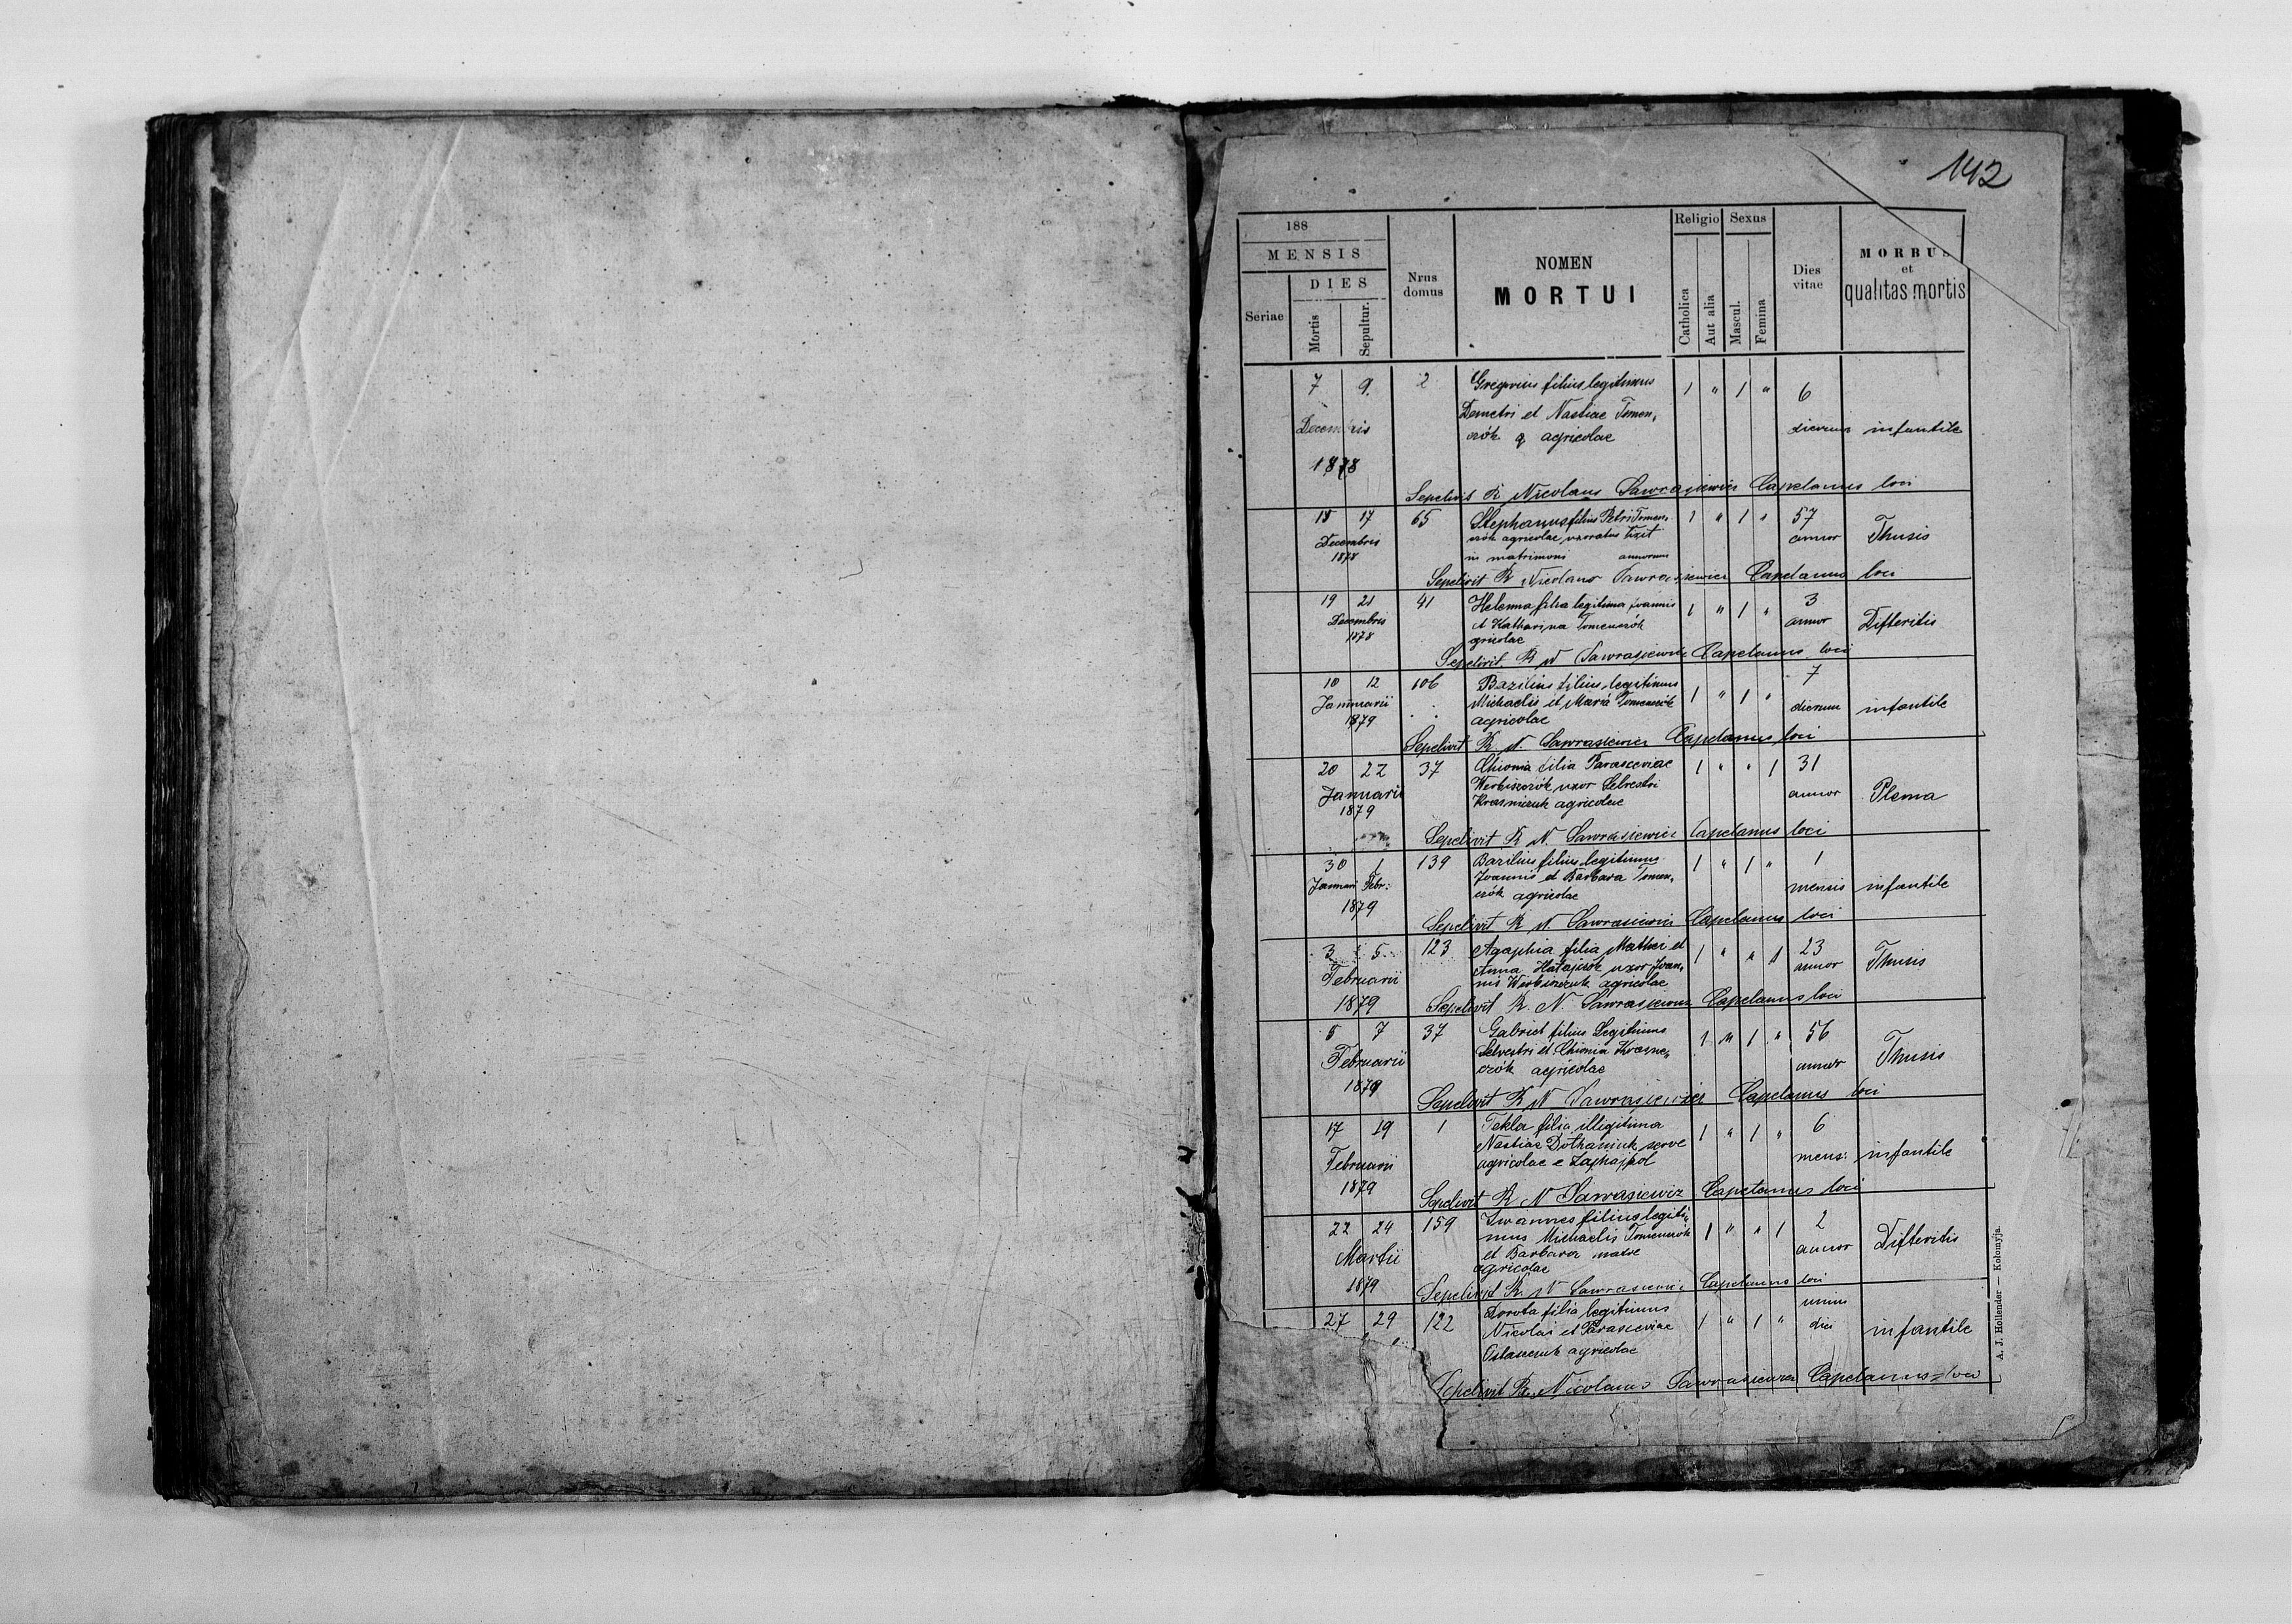 142
188
MENSIS
DIES
Seriae
Mortis
Sepultur.
Nrus domus
NOMEN
MORTUI
Religio
Catholica
Aut alia
Sexus
Mascul.
Femina
Dies vitae
MORBUS
et
qualitas mortis
7 9. 2 Gregorius filius legitimus 1 " 1 " 6
Demetri et Nastiae Tomen,
Decembris czók q agricolae dierum infantile
1878
Sepelivit R Nicolaus Sawrasiewicz Capelanus loci
15 17 65 Stephanus filius Petri Tomen, 1 " 1 " 57
Decembris czók agricolae uxoratus vixit annor Thusis
1878 in matrimoni annorum
Sepelivit R Nicolaus Sawrasiewicz Capelanus loci
19 21 41 Helenna filia legitima Joannis 1 " 1 " 3
Decembris et Katharina Tomenczók annor Difteritis
1878 agricolae
Sepelivit R N Sawrasiewicz Capelanus loci
10 12 106 Bazilius filius legitimus 1 " 1 " 7
Januarii Michaelis et Maria Tomenczók dierum infantile
1879 agricolae
Sepelivit R N. Sawrasiewicz Capelanus loci
20 22 37 Chionia filia Parasceviae 1 " " 1 31
Januarii uxor Selvestri annor Plema
1879 Krasniczuk agricolae
Sepelivit R N. Sawrasiewicz Capelanus loci
30 1 139 Bazilius filius legitimus 1 " 1 " 1
Januari Febr: Joannis et Barbara Tomen, mensis infantile
1879 czók agricolae
Sepelivit R N. Sawrasiewicz Capelanus loci
3 5 123 Agaphia filia Mathei et 1 " " 1 23
Februarii Anna uxor Joan, annor Thusis
nis agricolae
1879 Sepelivit R. N. Sawrasiewicz Capelanus loci
5 7 37 Gabriel filius Legitimus 1 " 1 " 56
Februarii Selvestri et Chionia Krasne, annor Thusis
1879 czók agricolae
Sepelivit R N Sawrasiewicz Capelanus loci
17 19 1 Tekla filia illigitima 1 " 1 " 6
Februarii Nastiae serve mens: infantile
agricolae e
1879 Sepelivit R N Sawrasiewicz Capelanus loci
22 24 159 Iwannes filius legiti, 1 " " 1 2
Martii mus Michaelis Tomenczók annor Difteritis
et Barbara
agricolae
1879 Sepelivit R. N Sawrasiewicz Capelanus loci
27 29 122 Dorota filia legitimus 1 " 1 " unius
Nicolai et Parasceviae diei infantile
agricolae
Sepelivit R. Nicolaus Sawrasiewicz Capelanus loci
A. J. Hollender — Kolomyja.